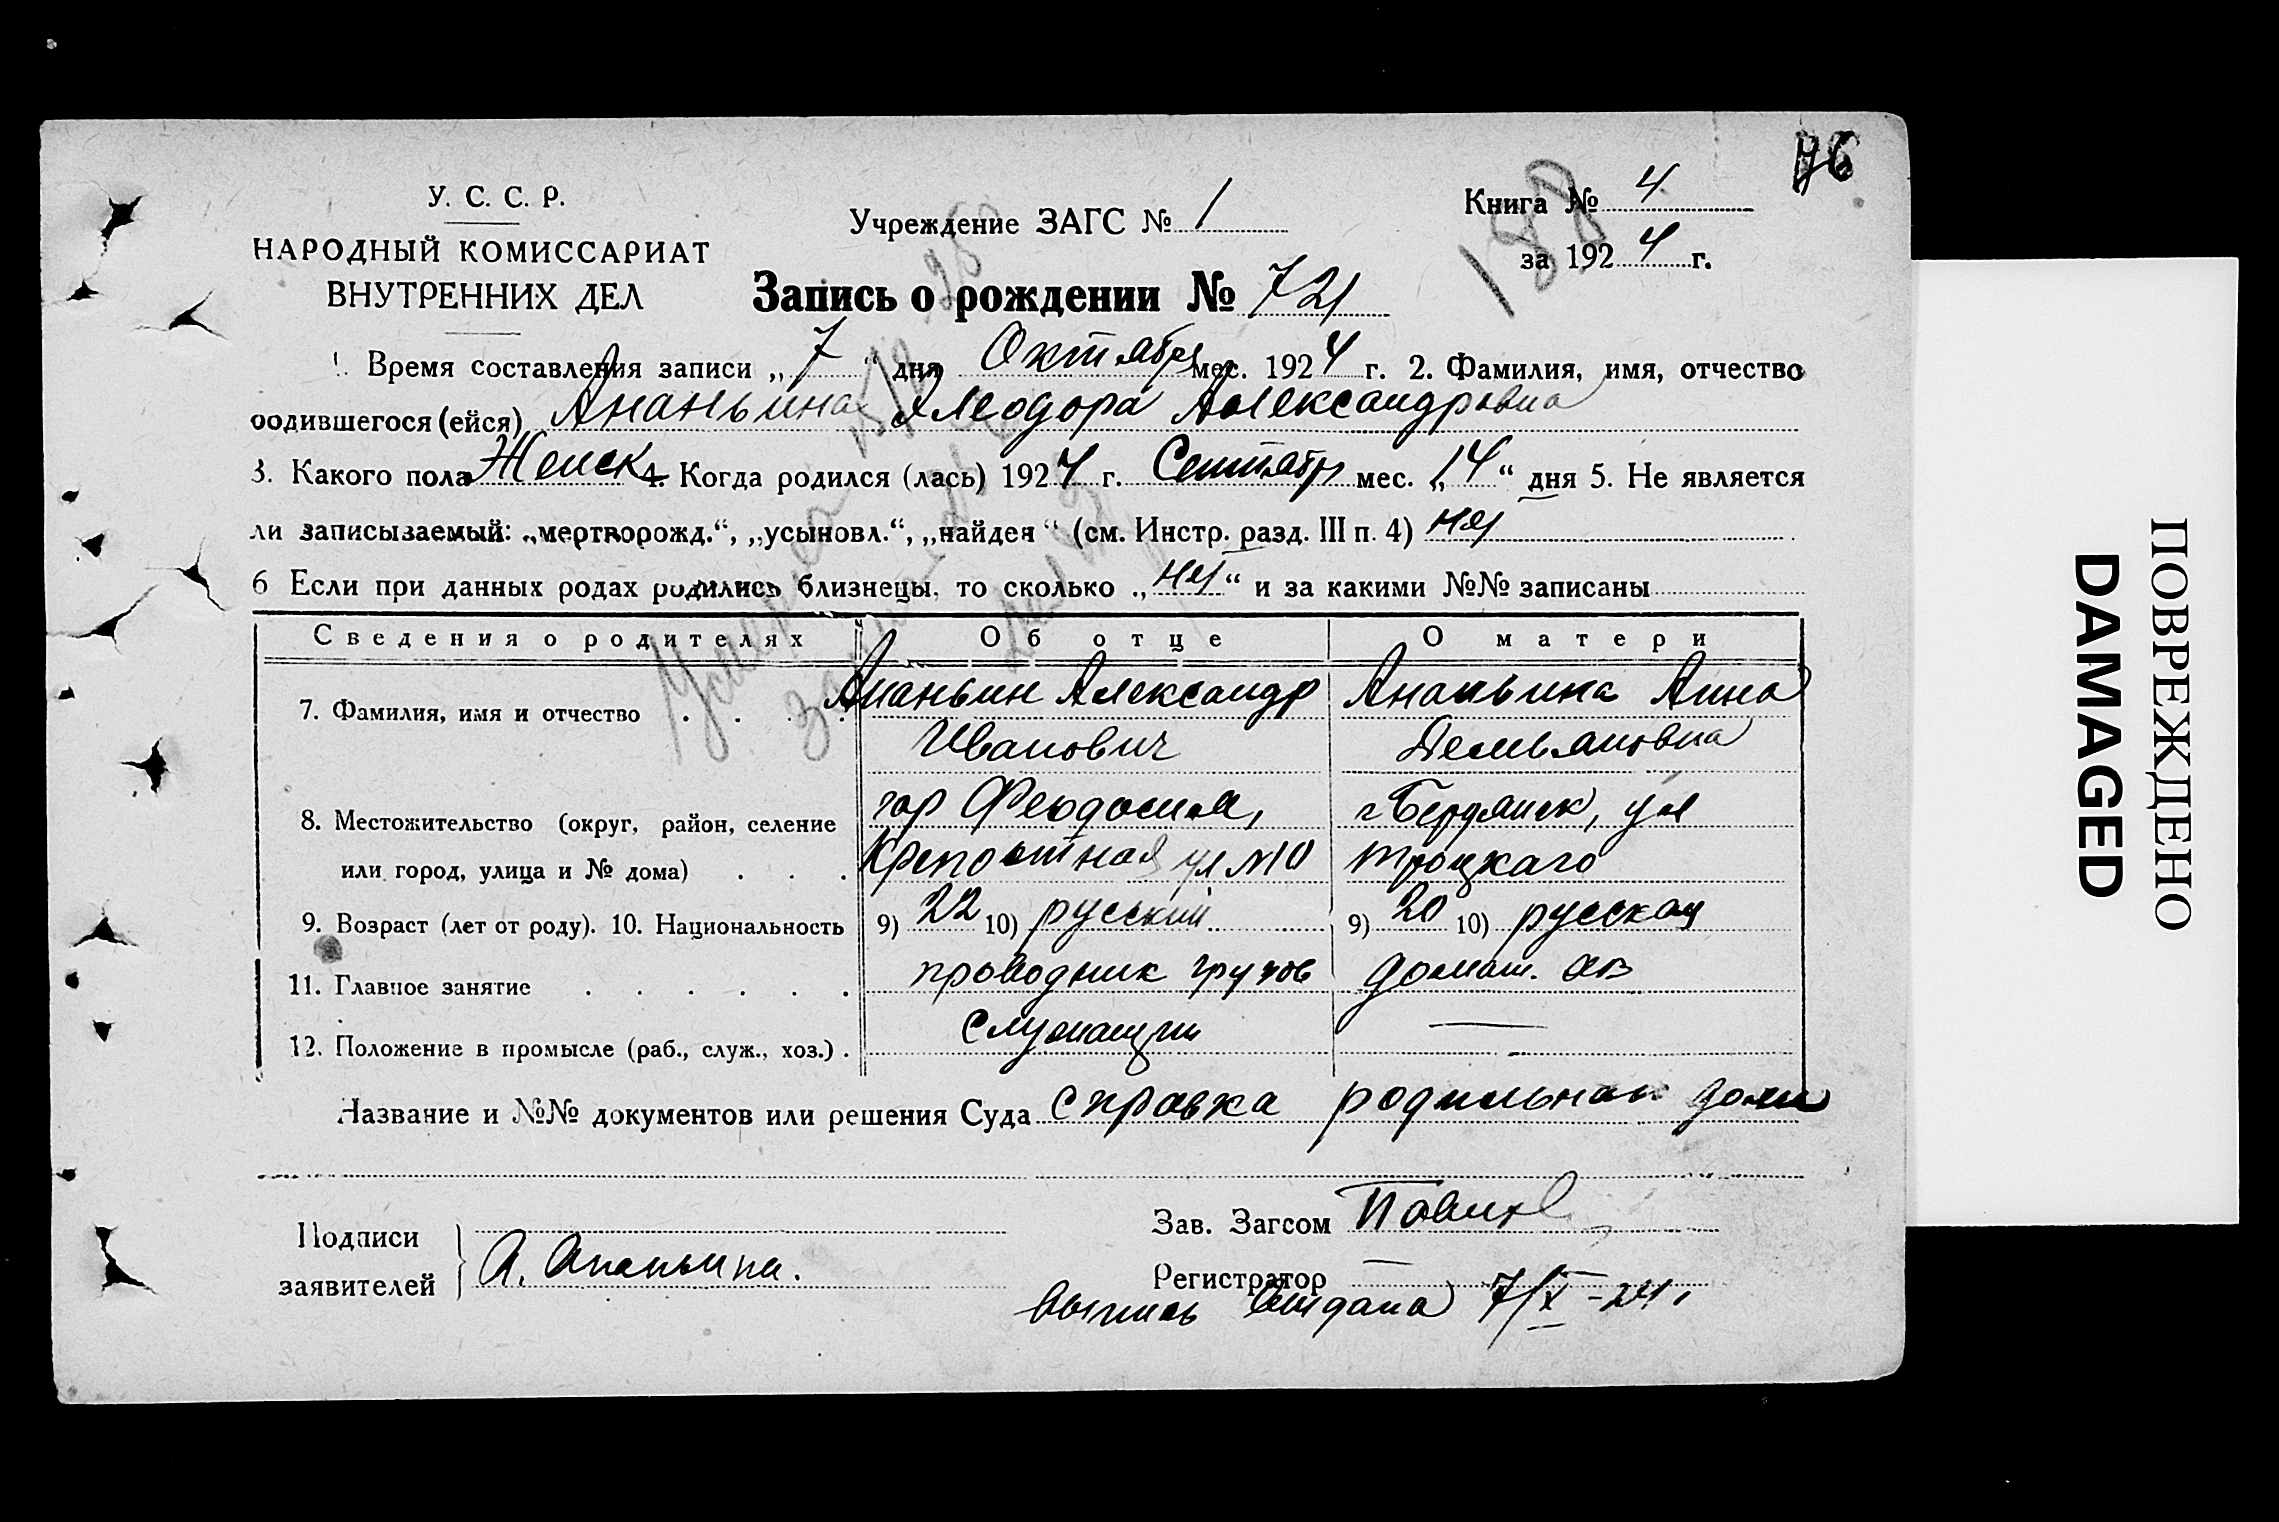 76
У. С. С. Р.
НАРОДНЫЙ КОМИССАРИАТ
ВНУТРЕННИХ ДЕЛ
Учреждение ЗАГС № 1
Книга № 4
за 1924 г.
188
Запись о рождении № 721
1. Время составления записи „7“ дня Октября мес. 1924 г. 2. Фамилия, имя, отчество
родившегося (ейся) Ананьина Александровна
3. Какого пола Женск 4. Когда родился (лась) 1924 г. Сентябр мес. „14“ дня 5. Не является
ли записываемый: „мертворожд.“, „усыновл.“, „найден“ (см. Инстр. разд. III п. 4) нет
6 Если при данных родах родились близнецы, то сколько „нет“ и за какими №№ записаны
Сведения о родителях Об отце О матери
7. Фамилия, имя и отчество Ананьин Александр Ананьина Анна
Иванович Демьяновна
8. Местожительство (округ, район, селение гор Феодосия, г Бердянск, ул
или город, улица и № дома) Крепостная ул №10 Троцкаго
9. Возраст (лет от роду). 10. Национальность 9) 22 10) русский 9) 20 10) русская
11. Главное занятие проводник грузов домаш. хоз
12. Положение в промысле (раб., служ., хоз.) служащий —
Название и №№ документов или решения Суда справка родильнаго дома
Подписи
заявителей А. Ананьина.
Зав. Загсом
Регистратор
выпись выдана 7/X-24 г
ПОВРЕЖДЕНО
DAMAGED